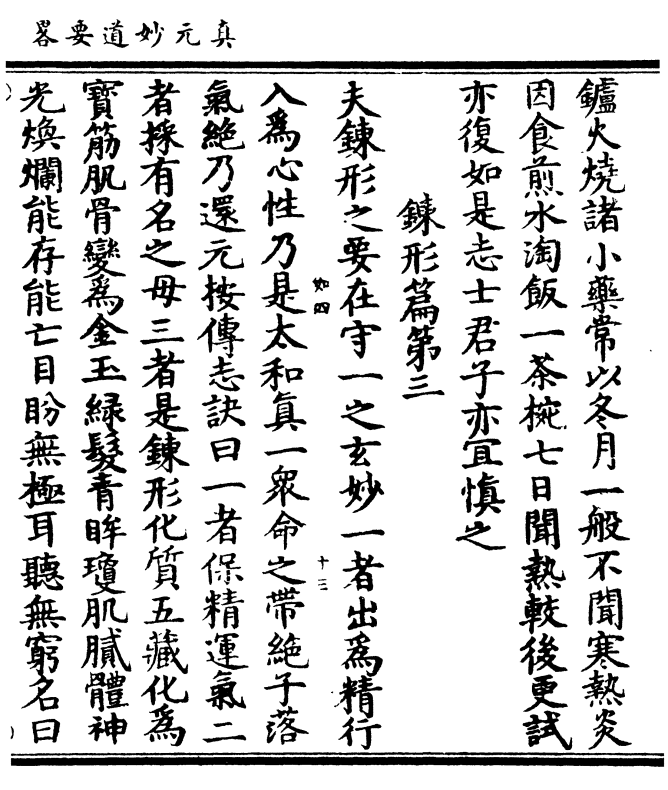 真元妙道要畧
鑪火燒諸小藥常以冬月一般不聞寒熱炎
因食煎水淘飯一茶椀七日聞熱較後更試
亦復如是志士君子亦宜慎之
鍊形篇第三
夫鍊形之要在守一之玄妙一者出爲精行
如四
十三
入爲心性乃是太和真一眾命之帶絶子落
氣絶乃還元按傳志訣曰一者保精運氣二
者採有名之母三者是鍊形化質五藏化爲
寶筋肌骨變爲金玉緑髮青眸瓊肌膩體神
光煥爛能存能亡目盼無極耳聽無窮名曰